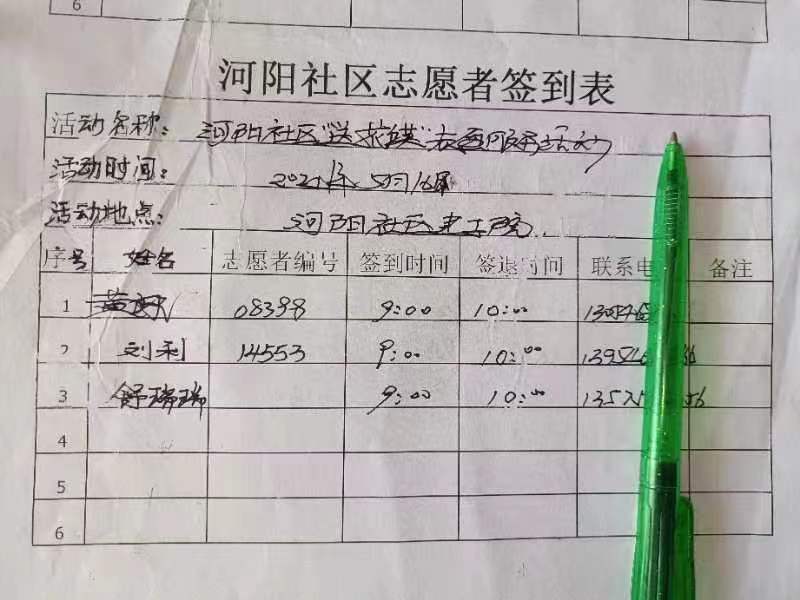 6
河阳社区志愿者签到表
活动名称: 河阳社区"送 "志愿服务活动
活动时间: 2021年 5月16日
活动地点: 河阳社区 院
序号 姓名 志愿者编号 签到时间 签退时间 联系电 备注
1 黄 08398 9:00 10:00
2 刘利 14553 9:00 10:00
3 舒瑞瑞 9:00 10:00
4
5
6